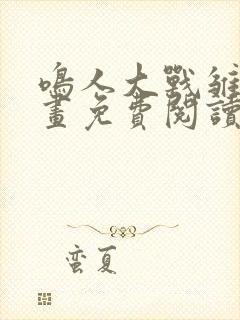 鳴人大戰雛
畫免費閱讀
蛮夏